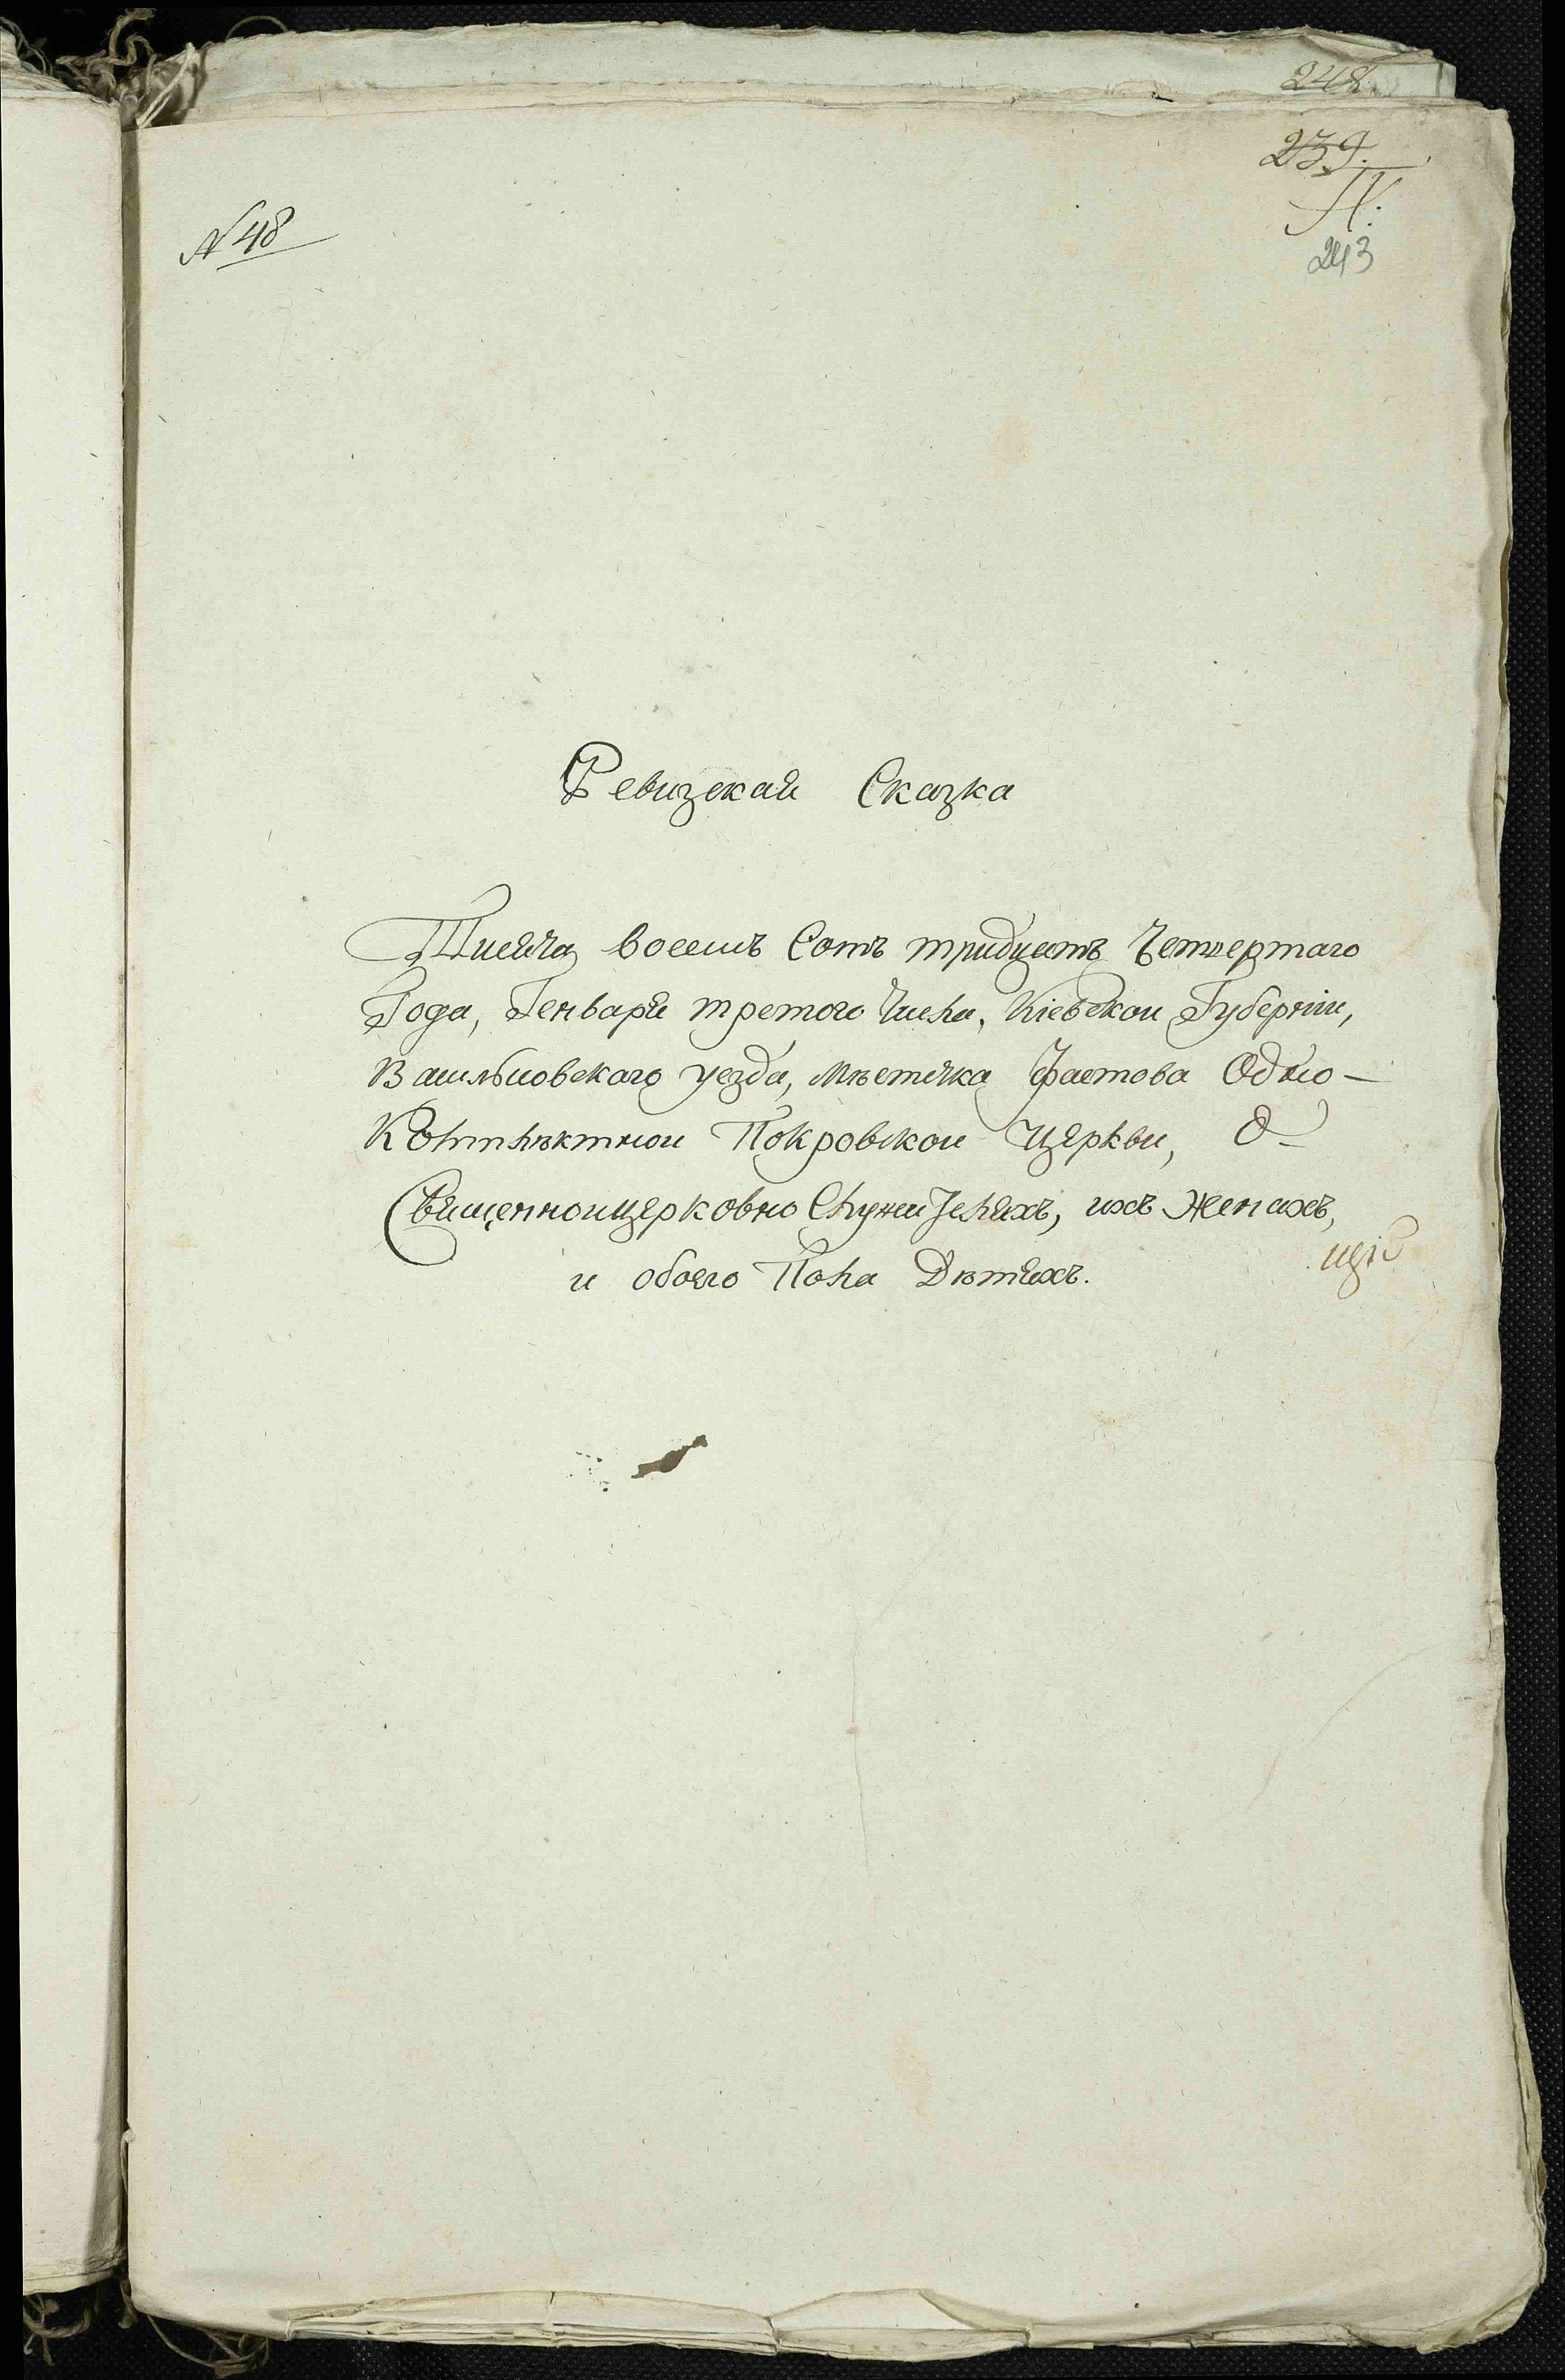 248
239.
N 48
243
Ревизская Сказка
Тисяча восемъ Сотъ тридцать Четвертаго
Года, Генваря третого Числа, Кіевской Губерніи,
Васильковского уезда, мѣстечка Фастова Одно-
Комплѣктной Покровской Церкви, О-
Священноицерковно Служителяхъ, ихъ Женахъ,
и обоего Пола Дѣтяхъ.